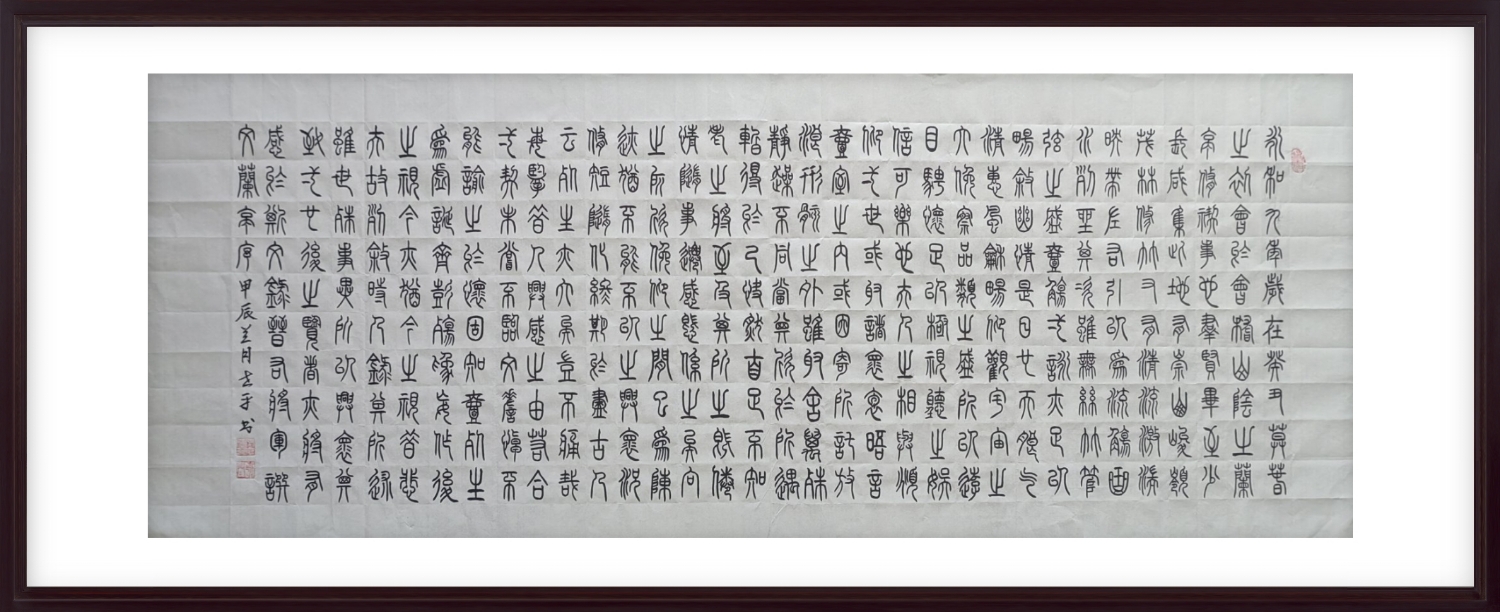 永和九年歲在癸丑莫春
之初會於會稽山陰之蘭
亭修禊事也羣賢畢至少
長咸集此地有崇山峻領
茂林修竹又有清流激湍
映帶左右引以為流觴曲
水列坐其次雖無絲竹管
弦之盛壹觴弌詠亦足以
暢敘幽情是日也天朗气
清惠風龢暢仰觀宇宙之
大俛察品類之盛所以遊
目騁懷足以極視聽之娛
信可樂也夫人之相與俯
仰弌世或取諸懷抱晤言
壹室之內或因寄所託放
浪形骸之外雖取舍萬殊
靜躁不同當其欣於所遇
暫得於己快然自足不知
老之將至及其所之既倦
情隨事遷感態係之矣向
之所欣俛仰之間已為陳
迹猶不能不以之興懷況
修短隨化終期於盡古人
云死生亦大矣豈不痛哉
每擥昔人興感之由若合
弌契未嘗不臨文嗟悼不
能諭之於懷固知壹死生
為虛誕齊彭殤為妄作後
之視今亦猶今之視昔悲
夫故列敘時人錄其所述
雖世殊事異所以興懷其
致弌也後之覽者亦將有
感於斯文錄晉右將軍譔
文蘭亭序甲辰兰月書